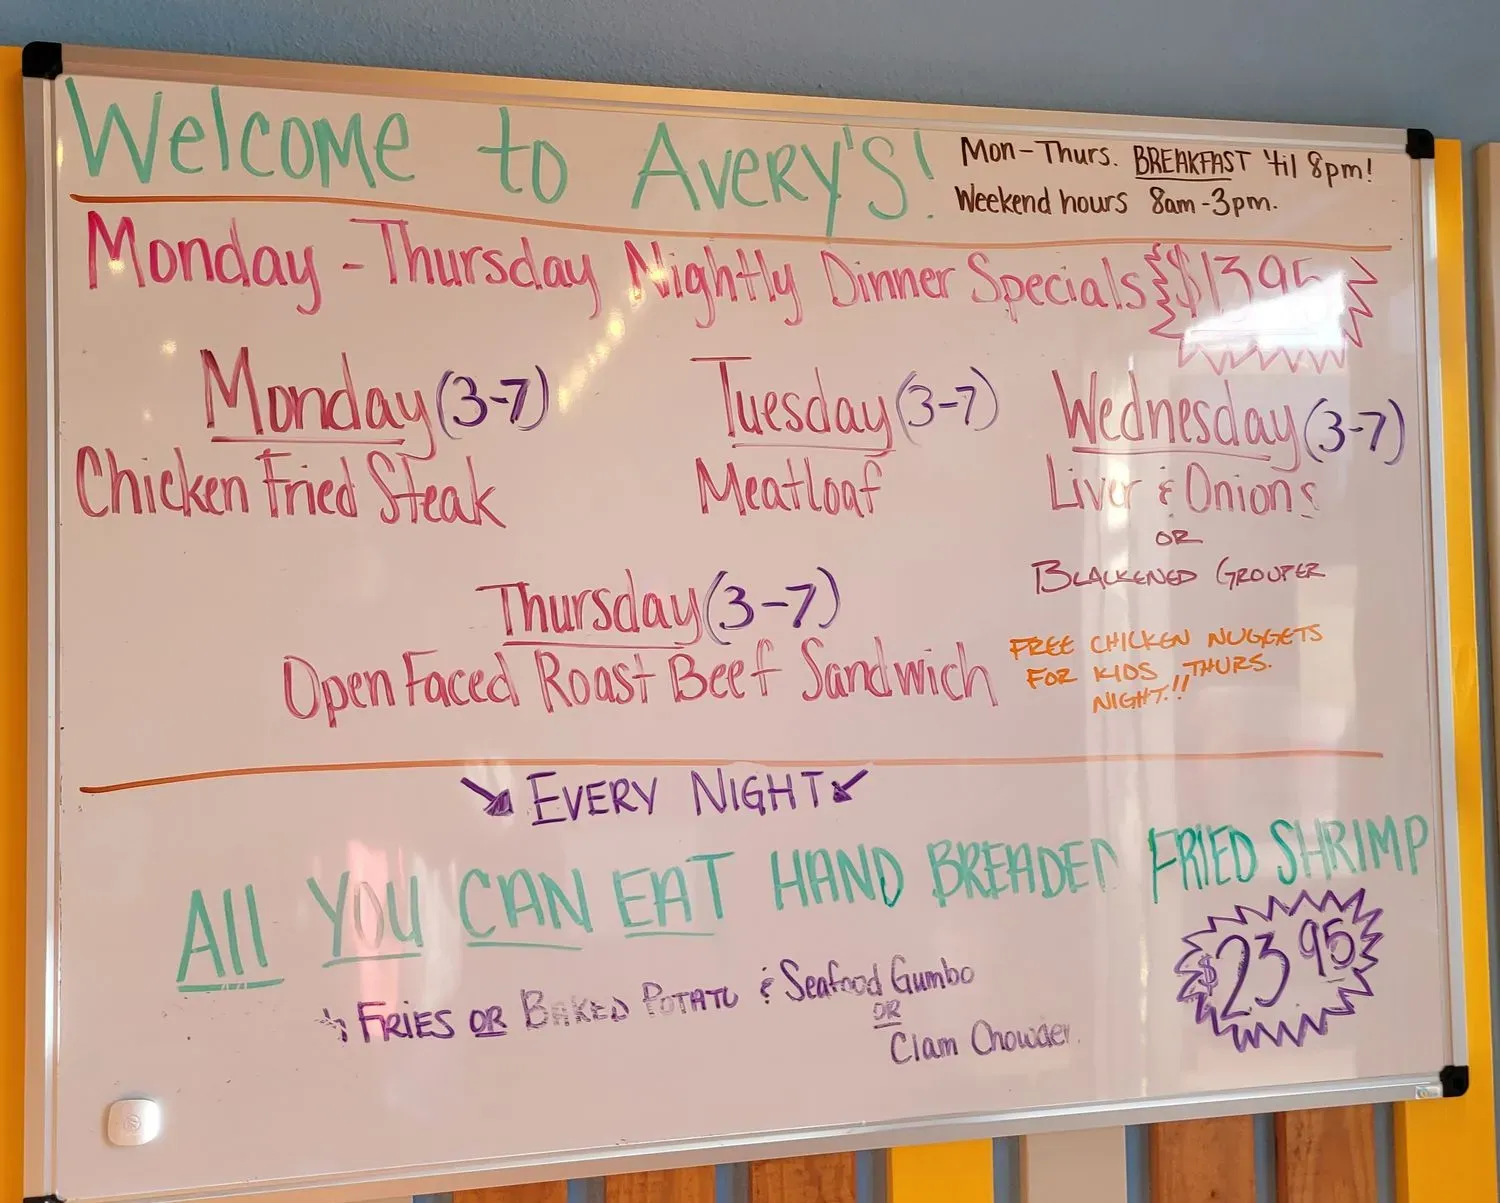 Welcome to Avery's!
Mon-Thurs. BREAKFAST 'til 8pm!
Weekend hours 8am-3pm.
Monday - Thursday Nightly Dinner Specials $13.95
Monday (3-7)
Chicken Fried Steak
Tuesday (3-7)
Meatloaf
Wednesday (3-7)
Liver & Onions
OR
BLACKENED GROUPER
Thursday (3-7)
Open Faced Roast Beef Sandwich
FREE CHICKEN NUGGETS
FOR KIDS THURS.
NIGHT!!
EVERY NIGHT
All YOU CAN EAT HAND BREADED FRIED SHRIMP
$23.95
+ FRIES OR BAKED POTATO & Seafood Gumbo
OR
Clam Chowder